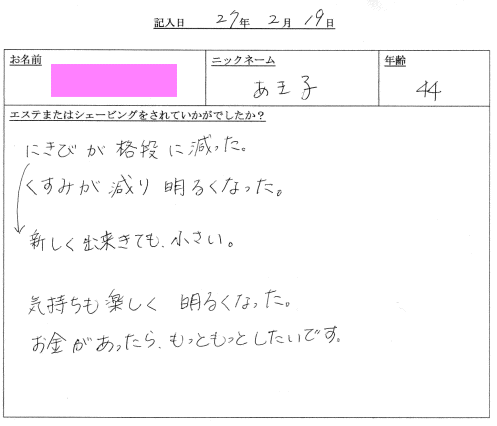 記入日 27年 2月 19日
お名前 ニックネーム 年齢
あき子 44
エステまたはシェービングをされていかがでしたか？
にきびが 格段に減った。
くすみが 減り 明るくなった。
新しく出来きても、小さい。
気持ちも楽しく 明るくなった。
お金があったら、もっともっとしたいです。